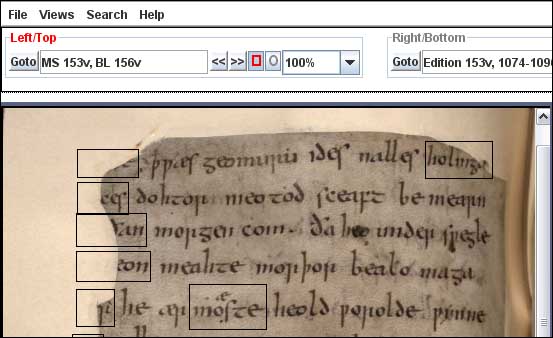 File Views Search Help
Left/Top Right/Bottom
Goto MS 153v, BL 156v << >> 100% Goto Edition 153v, 1074-109
ƿæs geomuru ides nalles holinga
ces dohtor meotod sceaft be mearn
ðan morgen com ða heo under sƿegle
eon meahte morþor bealo maga
he ær mæste heold ƿorolde ƿynne